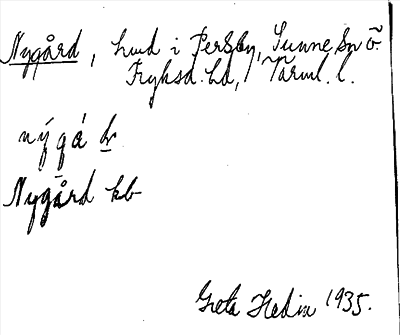 Nygård, hmd i Persby, Sunne sn ö.
Fryksd. hd, Värml. l.
nýgå
Nygård kb
Greta Hedin 1935.